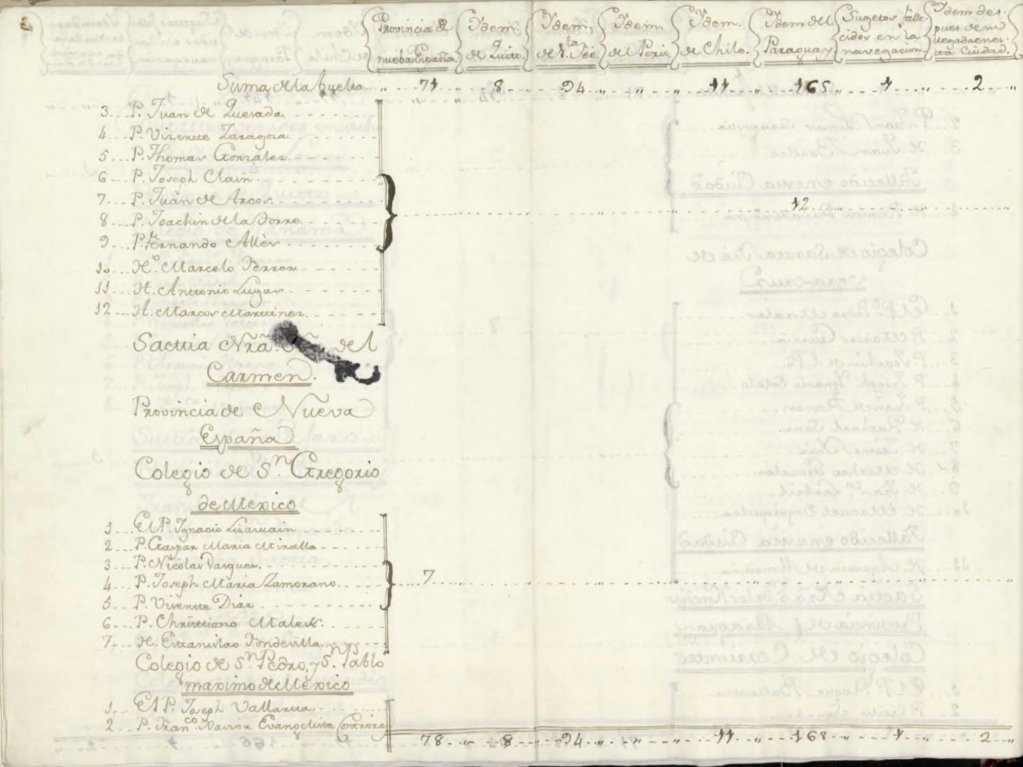 Provincia de nueba España. Idem. de Quito. Idem. de Sta. Fee Idem. del Perú. Idem. de Chile. Idem del Paraguay Sugetos falle-cidos en la navegacion. Idem des-pues de su
Suma de la buelta 71 8 94 11 165 1 2
3 P. Juan de Quesada
4 P. Vizente Zaragoza
5 P. Thomas Gonzalez
6 P. Joseph Clain
7 P. Juan de Arcos
8 P. Joachin de la Torre
9 P. Fernando Aller
10 Ho. Marcelo Ferrer
11 H. Antonio Lugar
12 H. Marcos Martinez
12
Saettia Nrã. del
Carmen.
Provincia de Nueva
España
Colegio de Sn. Gregorio
de Mexico
1 El P. Ignacio
2 P. Gaspar Maria Miralla
3 P. Nicolas Vazquez
4 P. Joseph Maria Zamorano
5 P. Vizente Diaz
6 P. Christiano
7 H. Estanislao
7
Colegio de Sn. Pedro, y S. Pablo
maximo de Mexico
1 El P. Joseph Vallarta
2 P. Franco. Xavier Evangelista Contreras
78 8 94 11 168 1 2